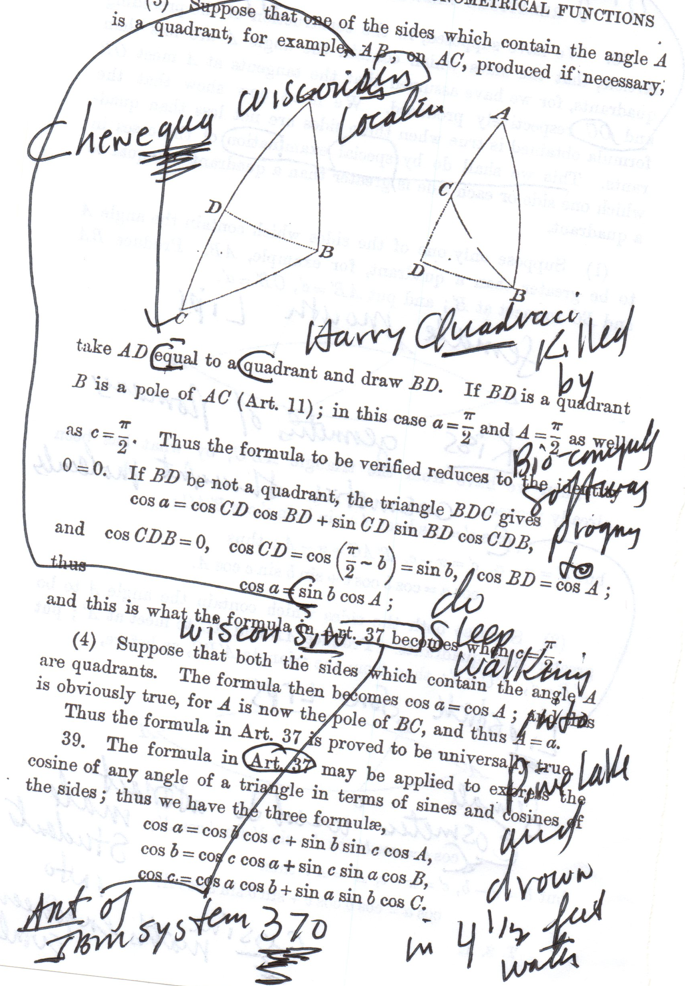 (3) Suppose that one of the sides which contain the angle A
is a quadrant, for example, AB; on AC, produced if necessary,
Chenequa Wisconisin
Localin
A
C
D
D
B
B
C
Harry Quadraci
Killed
by
take AD equal to a quadrant and draw BD. If BD is a quadrant
B is a pole of AC (Art. 11); in this case a = π/2 and A = π/2 as well
as c = π/2. Thus the formula to be verified reduces to the identity
0 = 0. If BD be not a quadrant, the triangle BDC gives
cos a = cos CD cos BD + sin CD sin BD cos CDB,
and cos CDB = 0, cos CD = cos (π/2 ~ b) = sin b, cos BD = cos A;
thus
cos a = sin b cos A;
and this is what the formula in Art. 37 becomes when c = π/2.
to
do
Wisconsin
Sleep
walking
into
(4) Suppose that both the sides which contain the angle A
are quadrants. The formula then becomes cos a = cos A; and this
is obviously true, for A is now the pole of BC, and thus A = a.
Thus the formula in Art. 37 is proved to be universally true.
39. The formula in Art. 37 may be applied to express the
cosine of any angle of a triangle in terms of sines and cosines of
the sides; thus we have the three formulæ,
cos a = cos b cos c + sin b sin c cos A,
cos b = cos c cos a + sin c sin a cos B,
cos c = cos a cos b + sin a sin b cos C.
Pine lake
and
drown
in 4 1/2 feet
water
Art of
IBM system 370